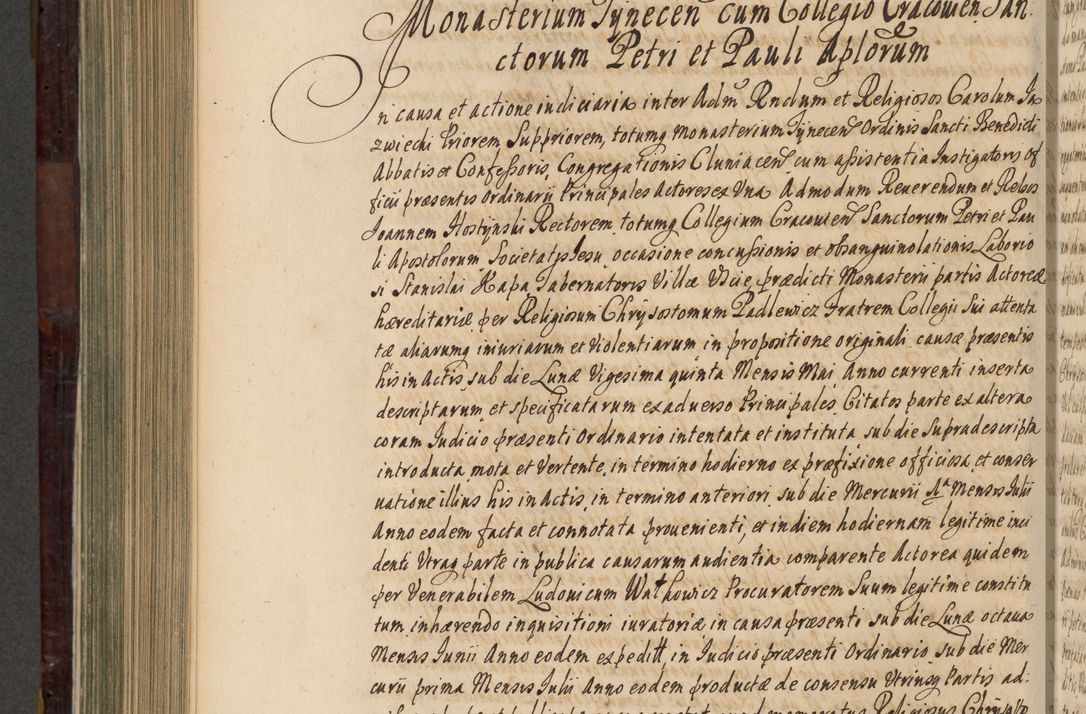 Monasterium Tynecen cum Collegio Cracovien San-
ctorum Petri et Pauli Aplorum
In causa et actione iudiciaria inter Adm Rndum et Religiosos Carolum Ja
zwiecki Priorem, Suppriorem, totumq Monasterium Tynecen Ordinis Sancti Benedicti
Abbatis et Confessoris, Congregationis Cluniacen cum assistentia Instigatoris of
ficii præsentis Ordinarii Principales Actores ex Una Admodum Reuerendum et Relsos
Joannem Hostynski Rectorem, totumq Collegium Cracouien Sanctorum Petri et Pau
li Apostolorum Societatis Jesu occasione concussionis et obsanguinolationis Laborio
si Stanislai Kapa Tabernatoris Villæ Uscie prædicti Monasterii partis Actoreæ
hæreditariæ per Religiosum Chrysostomum Padlewicz Fratrem Collegii Sui attenta
tæ aliarumq iniuriarum et violentiarum in propositione originali causæ præsentis
his in Actis, sub die Lunæ Vigesima quinta Mensis Mai Anno currenti inserta
descriptarum et specificatarum ex aduerso Principales Citatos parte ex altera
coram Judicio præsenti Ordinario intentata et instituta sub die Supradescripta
introducta mota et Vertente, in termino hodierno ex præfixione officiosa et conser
uatione illius his in Actis, in termino anteriori sub die Mercurii 1ª Mensis Julii
Anno eodem facta et connotata prouenienti, et in diem hodiernam legitime inci
denti Utraq parte in publica causarum audientia comparente Actorea quidem
per Venerabilem Ludouicum Wathowicz Procuratorem Suum legitime constitu
tum inhærendo inquisitioni iuratoriæ in causa præsenti sub die Lunæ octaua
Mensis Junii Anno eodem expeditt, in Judicio præsenti Ordinario, sub die Mer
curii prima Mensis Julii Anno eodem productæ de consensu Utriusq Partis ad-